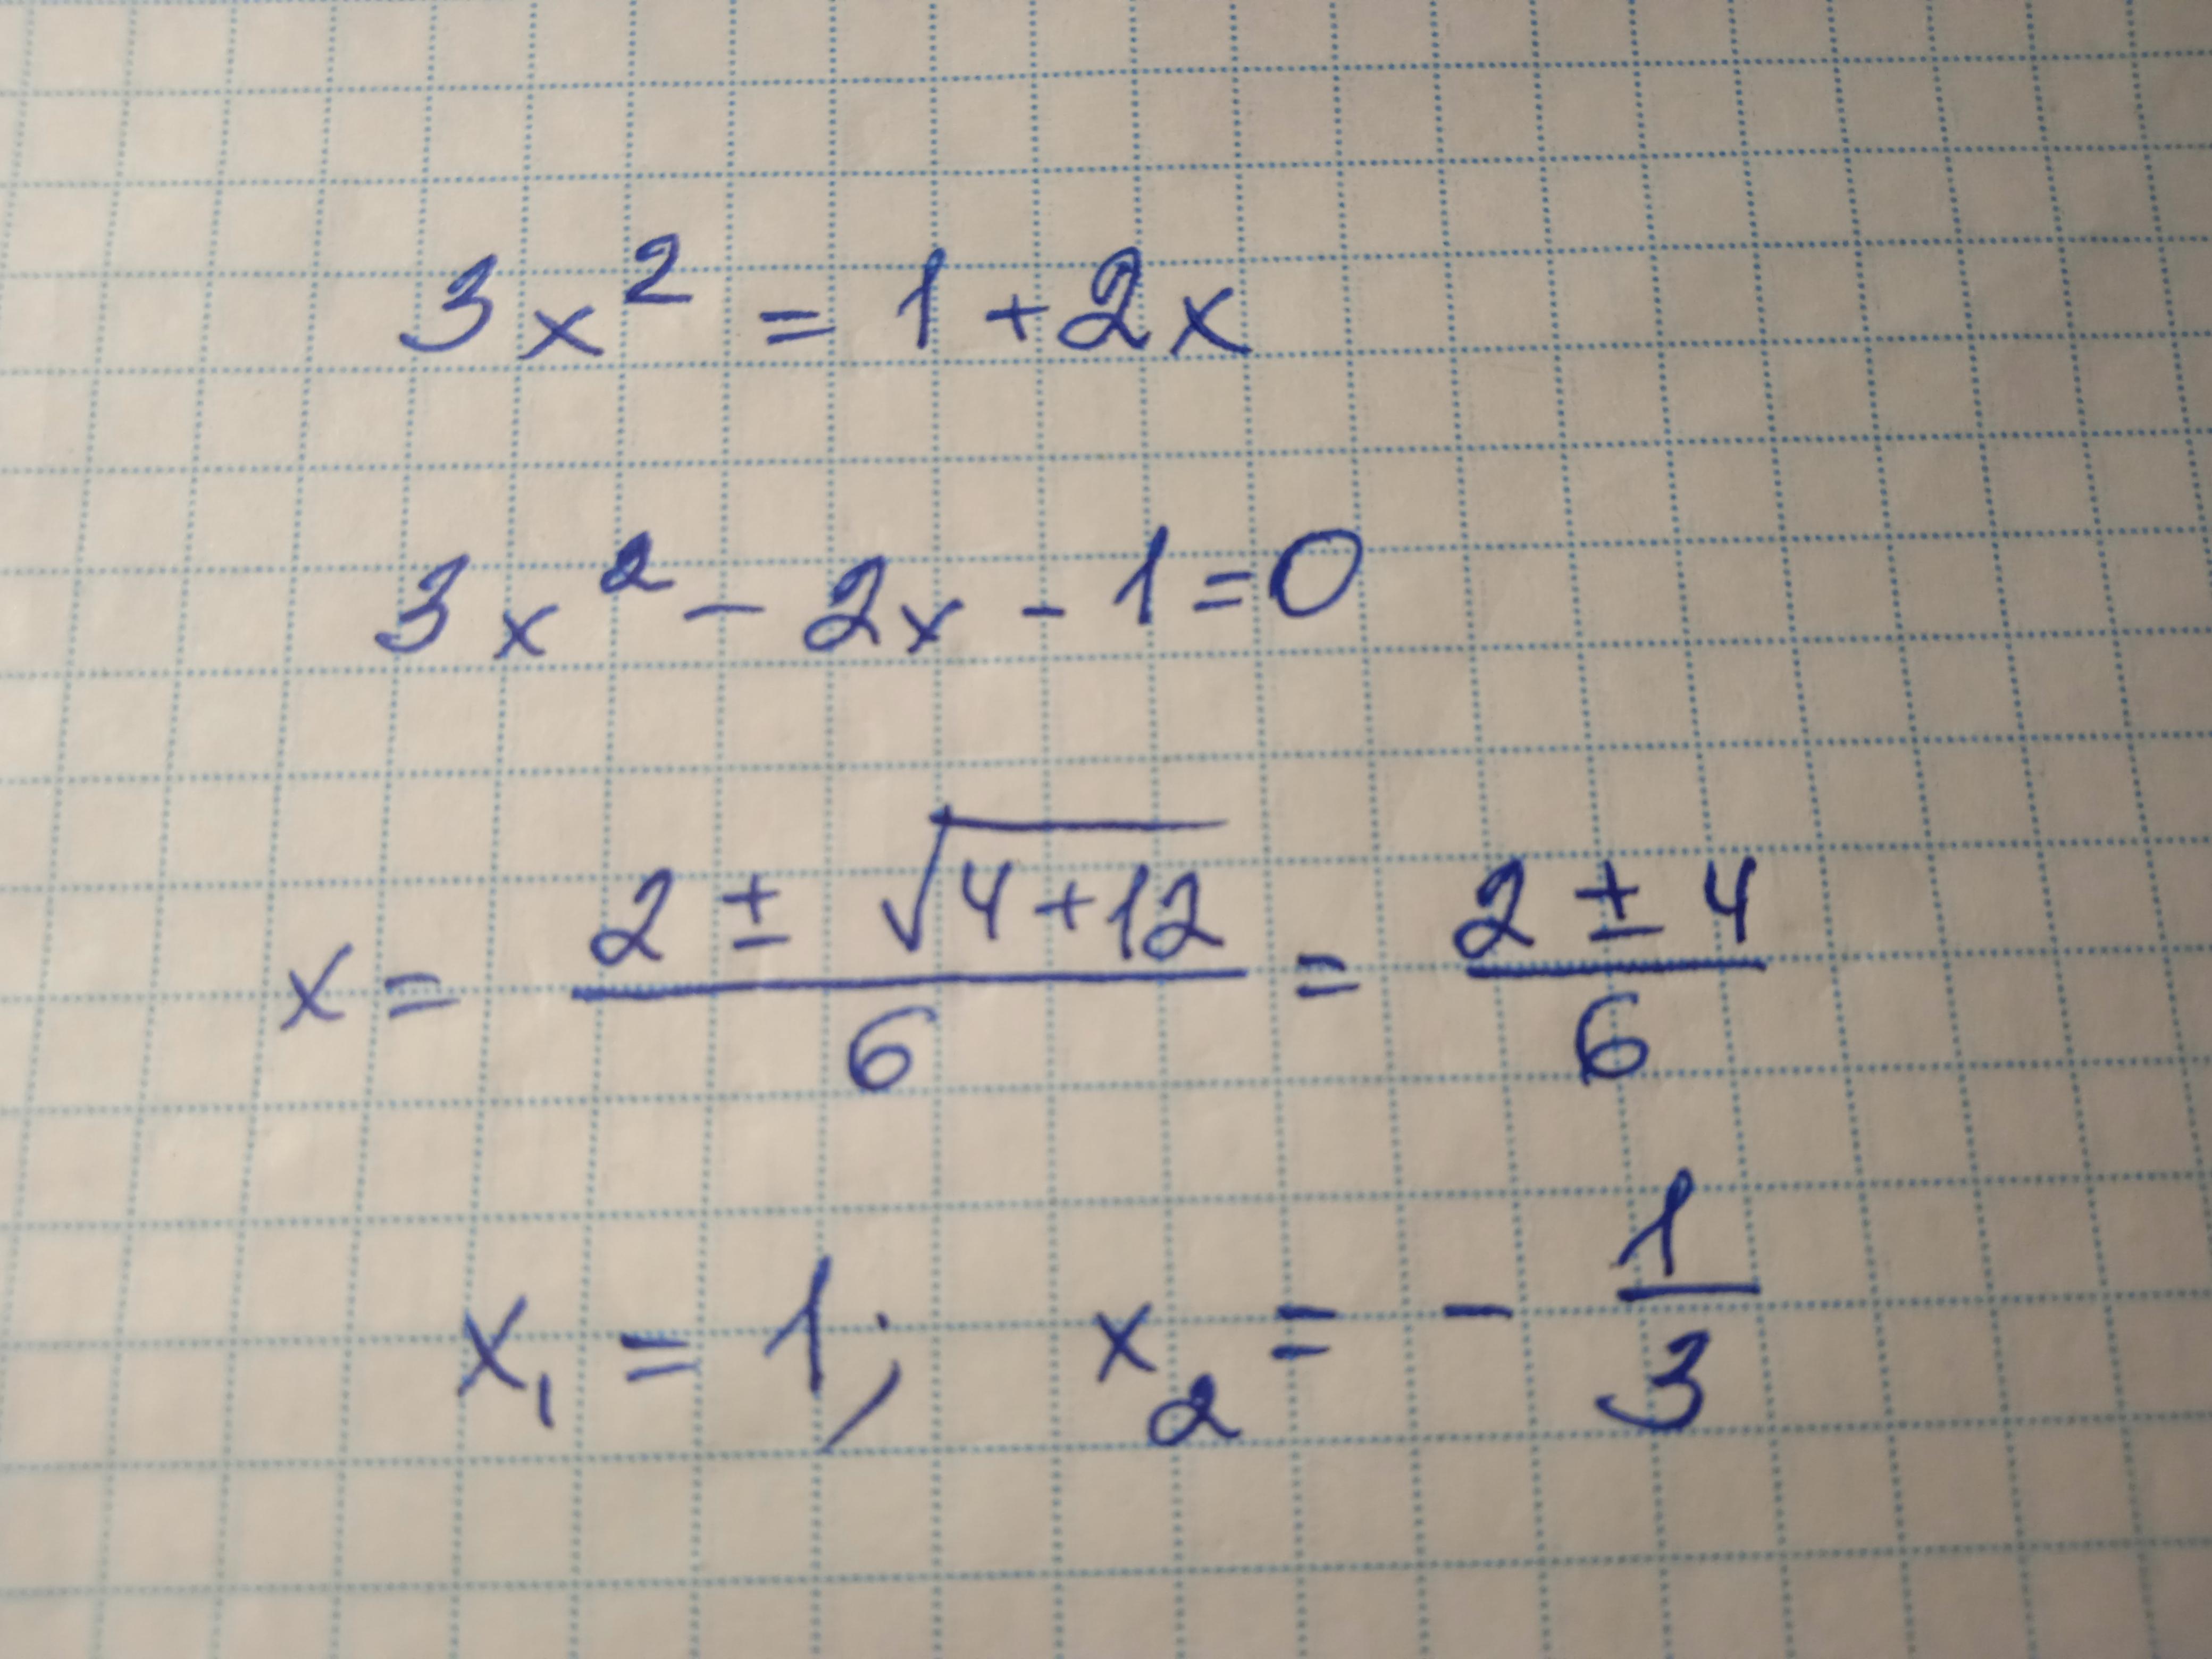 3x² = 1 + 2x
3x² - 2x - 1 = 0
x = (2 ± √(4+12))/6 = (2 ± 4)/6
x₁ = 1; x₂ = -1/3